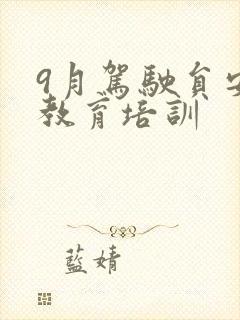 9月駕駛員安
教育培訓
藍婧